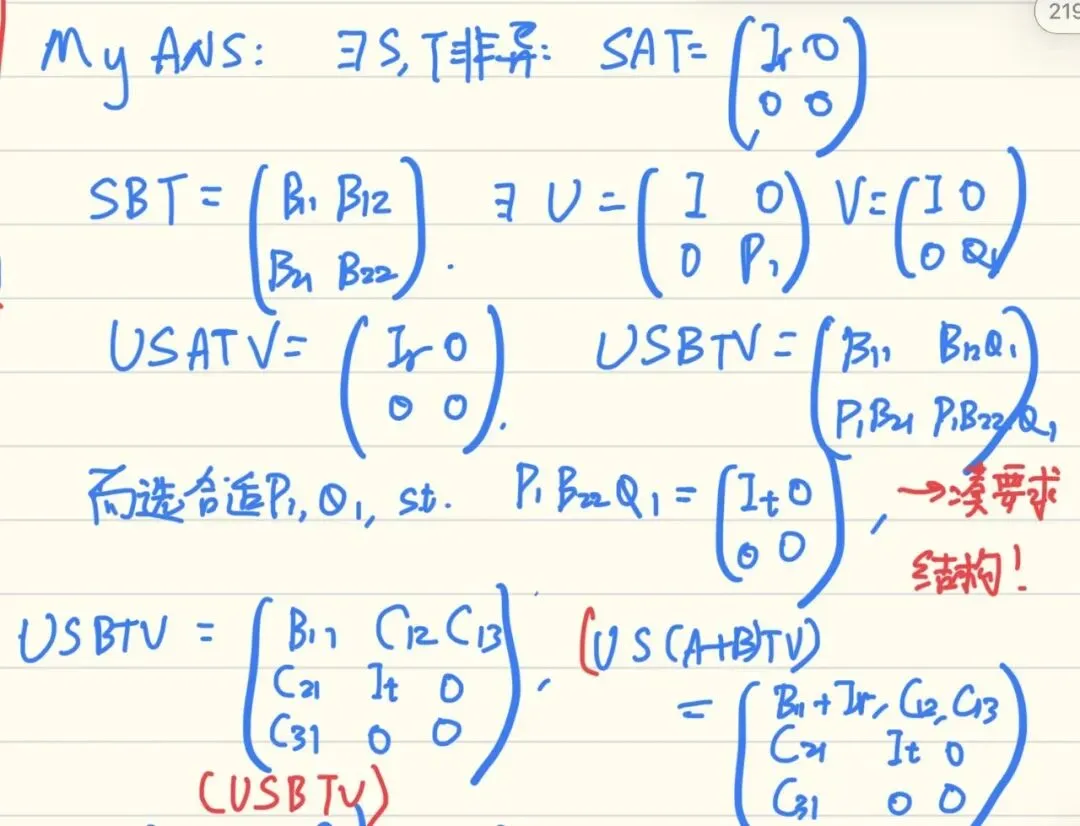 219
My ANS: ∃S,T非异: SAT= (Ir 0
0 0)
SBT = (B11 B12
B21 B22). ∃ U = (I 0
0 P1) V= (I 0
0 Q1)
USATV= (Ir 0
0 0). USBTV = (B11 B12Q1
P1B21 P1B22Q1)
而选合适P1,Q1, st. P1B22Q1 = (It 0
0 0), →凑要求
结构!
USBTV = (B11 C12 C13
C21 It 0
C31 0 0), (US(A+B)TV)
= (B11+Ir, C12, C13
C21 It 0
C31 0 0
(USBTV)